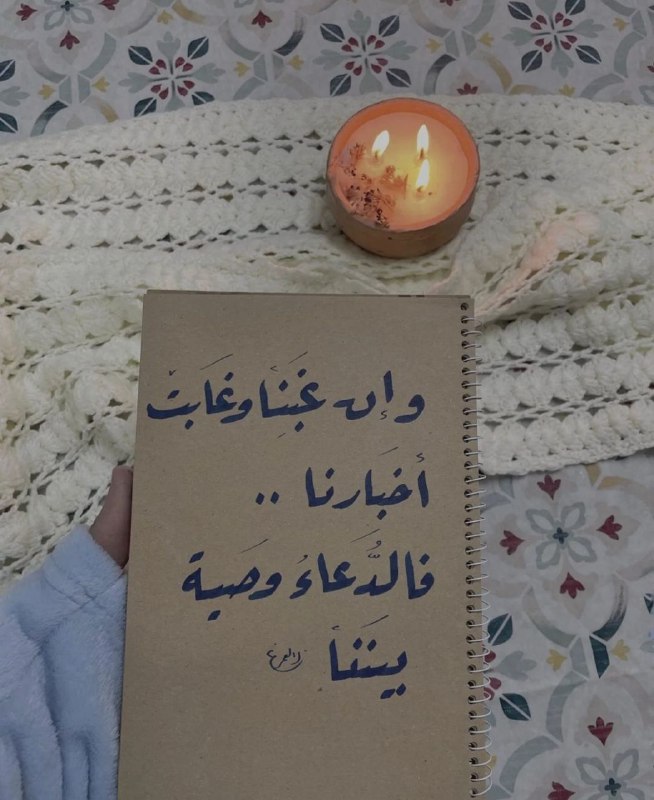 وإن غَبَنِا وغَابتْ
أخبَارنا ..
فالدُّعَاءُ وصَية
بينَنا